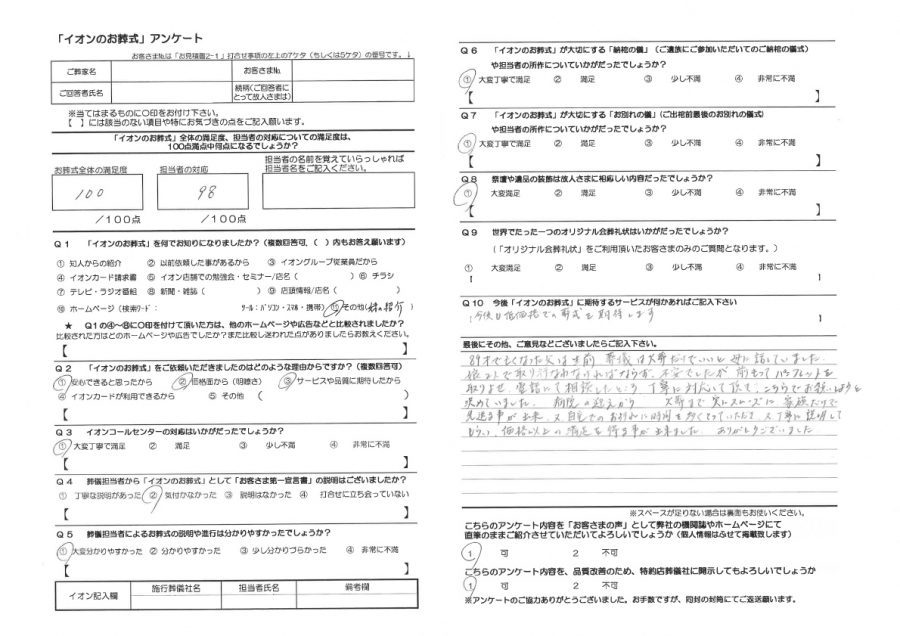 「イオンのお葬式」アンケート
お客さま№は「お見積書2-1」打合せ事項の左上の7ケタ(もしくは5ケタ)の番号です。↓
ご葬家名 お客さま№
ご回答者氏名 続柄(ご回答者にとって故人さまは)
※当てはまるものに○印をお付け下さい。
【 】には該当のない項目や特にお気づきの点をご記入願います。
「イオンのお葬式」全体の満足度、担当者の対応についての満足度は、
100点満点中何点になるでしょうか?
お葬式全体の満足度 担当者の対応 担当者の名前を覚えていらっしゃれば担当者名をご記入ください。
100 98
/100点 /100点
Q1 「イオンのお葬式」を何でお知りになりましたか?(複数回答可,( )内もお答え願います)
① 知人からの紹介 ② 以前依頼した事があるから ③ イオングループ従業員だから
④ イオンカード請求書 ⑤ イオン店舗での勉強会・セミナー/店名( ) ⑥ チラシ
⑦ テレビ・ラジオ番組 ⑧ 新聞・雑誌( ) ⑨ 店頭情報/店名( )
⑩ ホームページ(検索ワード: ツール:パソコン・スマホ・携帯) ⑪ その他(妹の紹介)
★ Q1の④~⑧に○印を付けて頂いた方は、他のホームページや広告などと比較されましたか?
比較された方はどのホームページや広告でしたか?また比較し迷われた点がありましたらお教えください。
【 】
Q2 「イオンのお葬式」をご依頼いただきましたのはどのような理由からですか?(複数回答可)
① 安心できると思ったから ② 価格面から(明瞭さ) ③ サービスや品質に期待したから
④ イオンカードが利用できるから ⑤ その他 ( )
【 】
Q3 イオンコールセンターの対応はいかがだったでしょうか?
① 大変丁寧で満足 ② 満足 ③ 少し不満 ④ 非常に不満
【 】
Q4 葬儀担当者から「イオンのお葬式」として「お客さま第一宣言書」の説明はございましたか?
① 丁寧な説明があった ② 気付かなかった ③ 説明はなかった ④ 打合せに立ち会っていない
【 】
Q5 葬儀担当者によるお葬式の説明や進行は分かりやすかったでしょうか?
① 大変分かりやすかった ② 分かりやすかった ③ 少し分かりづらかった ④ 非常に不満
【 】
イオン記入欄 施行葬儀社名 担当者氏名 備考欄
Q6 「イオンのお葬式」が大切にする「納棺の儀」(ご遺族にご参加いただいてのご納棺の儀式)
や担当者の所作についていかがだったでしょうか?
① 大変丁寧で満足 ② 満足 ③ 少し不満 ④ 非常に不満
【 】
Q7 「イオンのお葬式」が大切にする「お別れの儀」(ご出棺前最後のお別れの儀式)
や担当者の所作についていかがだったでしょうか?
① 大変丁寧で満足 ② 満足 ③ 少し不満 ④ 非常に不満
【 】
Q8 祭壇や遺品の装飾は故人さまに相応しい内容だったでしょうか?
① 大変満足 ② 満足 ③ 少し不満 ④ 非常に不満
【 】
Q9 世界でたった一つのオリジナル会葬礼状はいかがだったでしょうか?
(「オリジナル会葬礼状」をご利用頂いたお客さまのみのご質問となります。)
① 大変満足 ② 満足 ③ 少し不満 ④ 非常に不満
【 】
Q10 今後「イオンのお葬式」に期待するサービスが何かあればご記入下さい
今後も低価格での葬式を期待します
最後にその他、ご意見などございましたらご記入下さい。
89才で亡くなった父は生前 葬儀は火葬だけでいいと母に話していました。
娘2人で取り行なわなければならず、不安でしたが 前もってパンフレットを
取りよせ 電話にて相談したところ 丁寧に対応して頂き、こちらでお願いしようと
決めていました。 病院の迎えから 火葬まで 実にスムーズに 家族だけで
見送る事が出来、又自宅でのお別れに時間を多くとっていただき、又丁寧に説明して
もらい、価格以上の満足を得る事が出来ました。 ありがとうございました
※スペースが足りない場合は裏面もお使いください。
こちらのアンケート内容を「お客さまの声」として弊社の機関誌やホームページにて
直筆のままご紹介させていただいてよろしいでしょうか(個人情報はふせて掲載致します)
1 可 2 不可
こちらのアンケート内容を、品質改善のため、特約店葬儀社に開示してもよろしいでしょうか
1 可 2 不可
※アンケートのご協力ありがとうございました。お手数ですが、同封の封筒にてご返送願います。